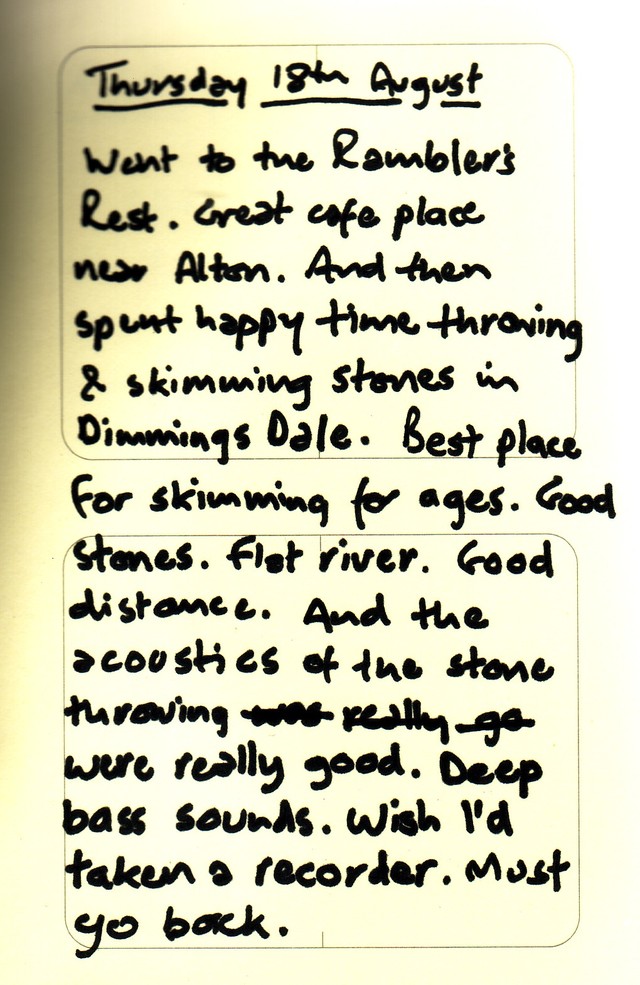 Thursday 18th August
Went to the Rambler's
Rest. Great cafe place
near Alton. And then
spent happy time throwing
& skimming stones in
Dimmings Dale. Best place
for skimming for ages. Good
stones. Flat river. Good
distance. And the
acoustics of the stone
throwing was really go
were really good. Deep
bass sounds. Wish I'd
taken a recorder. Must
go back.